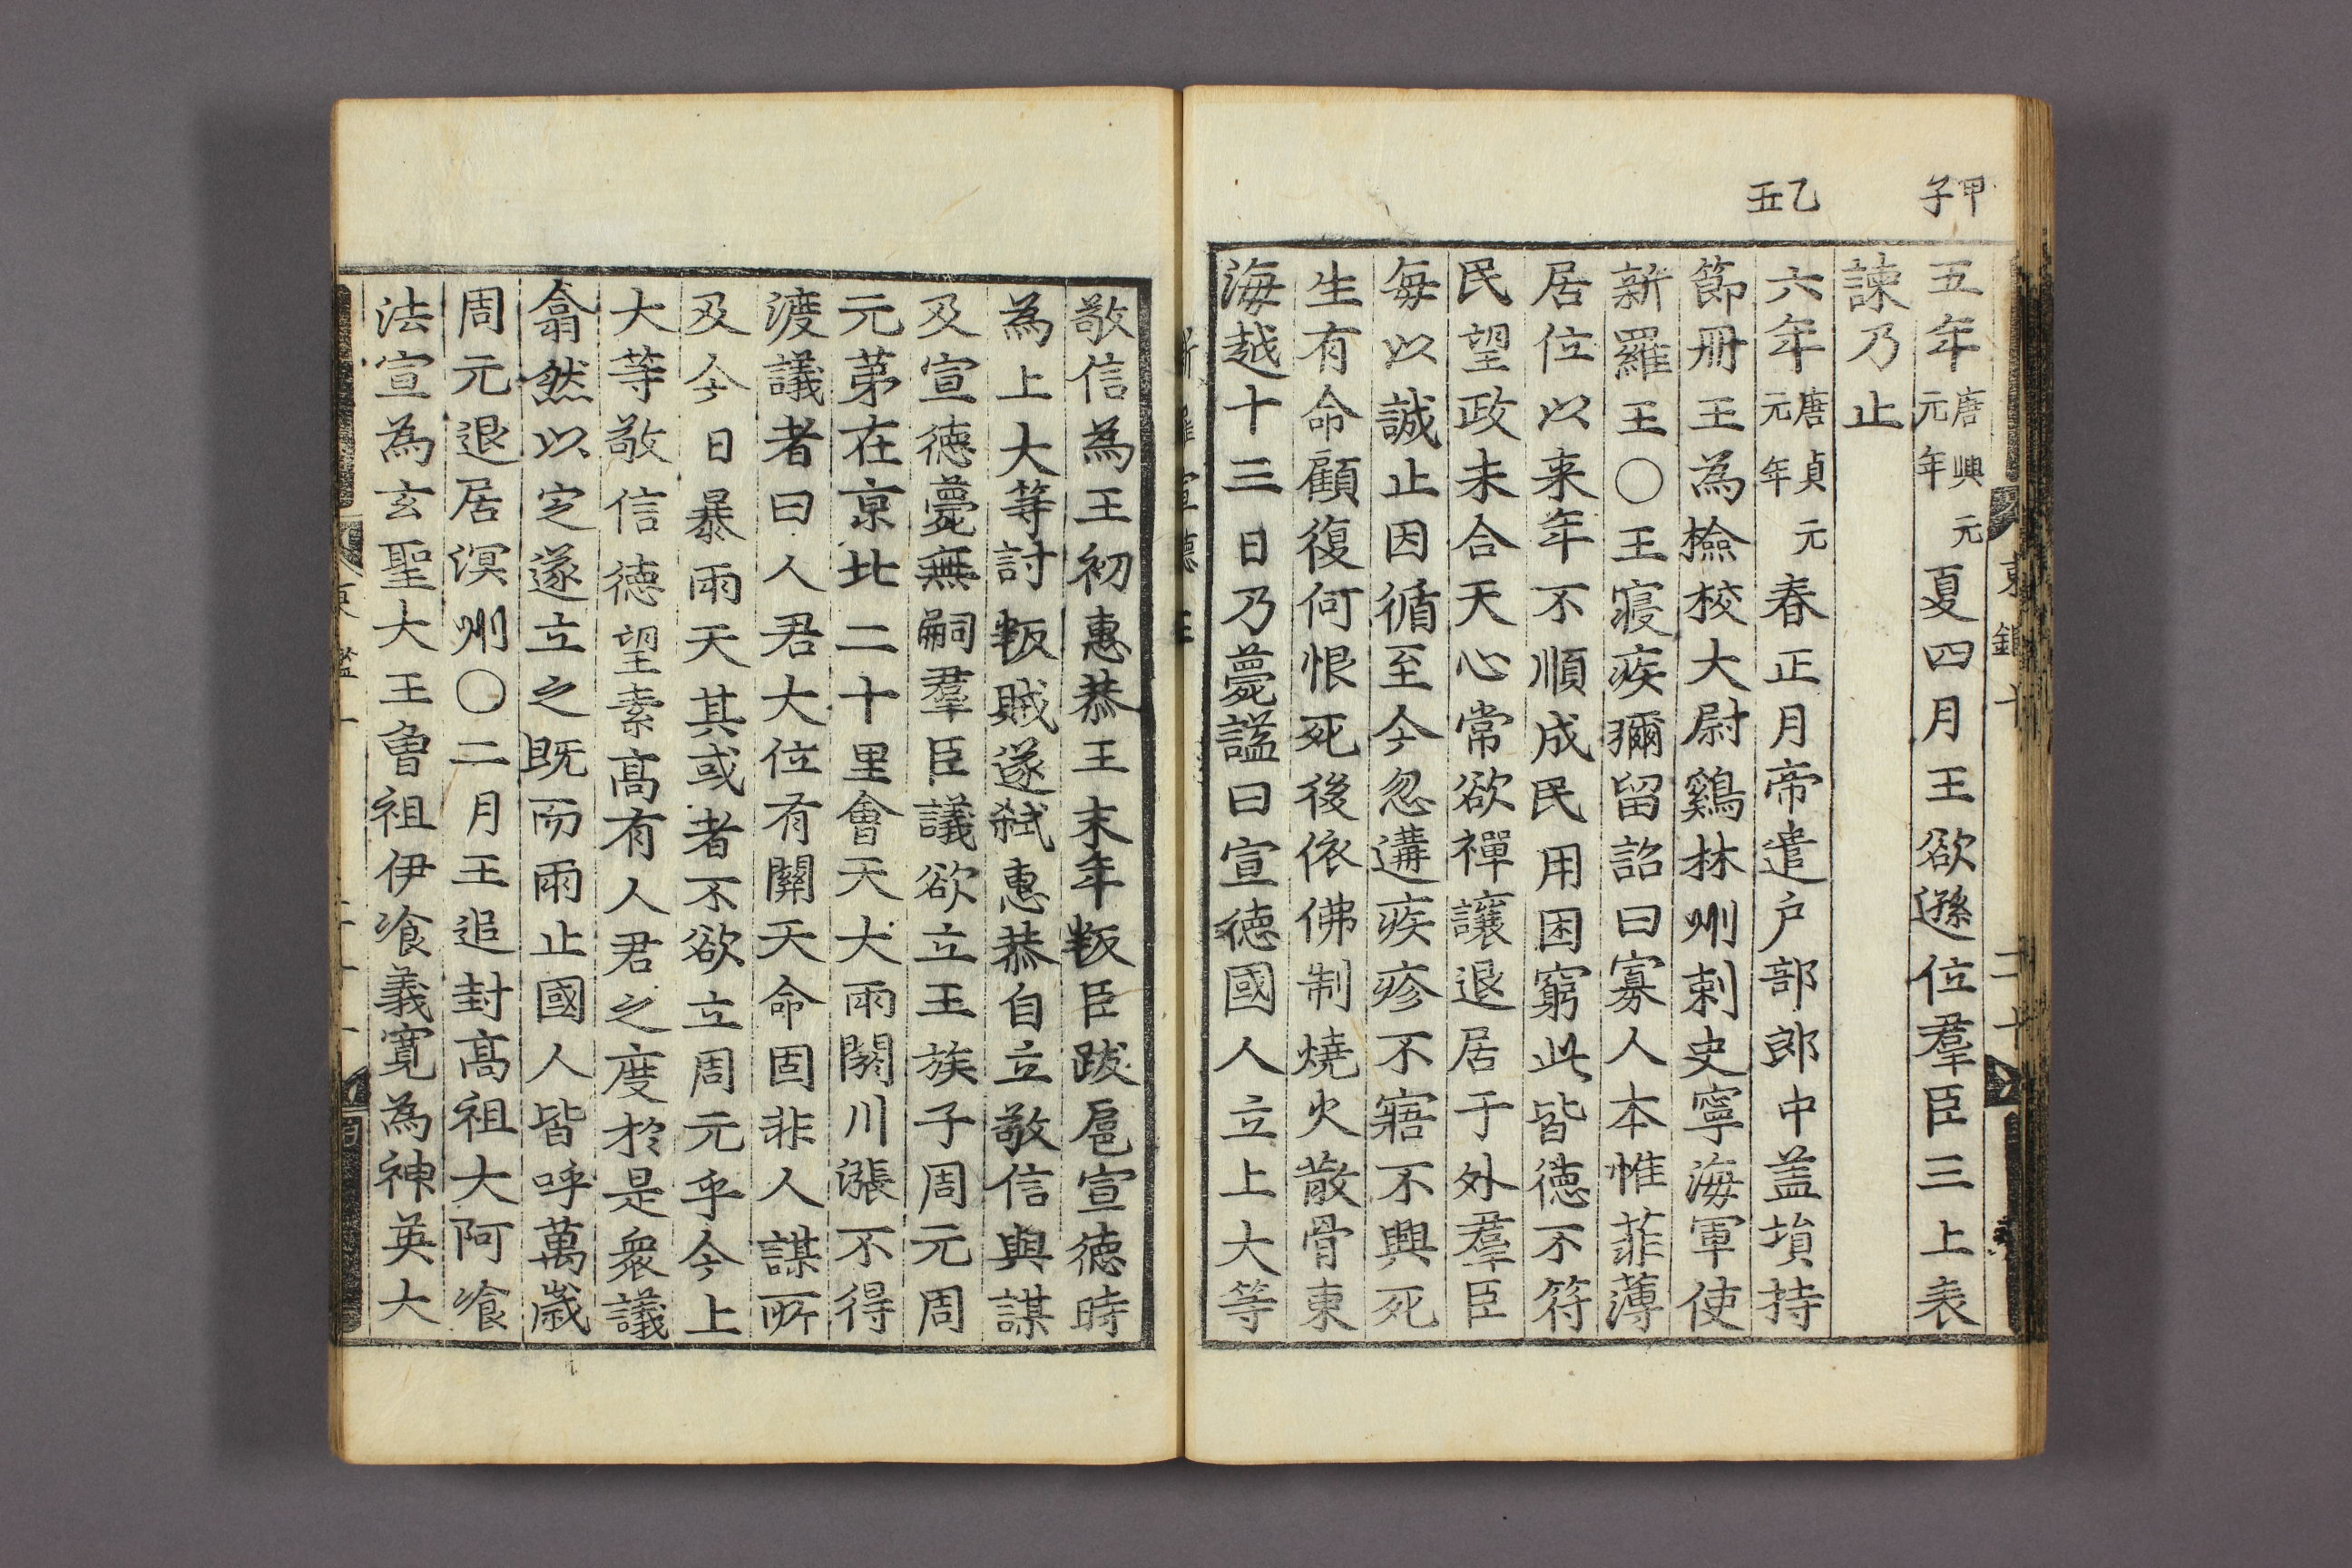 甲子
乙丑
五年唐興元元年夏四月王欲遜位羣臣三上表
諫乃止
六年唐貞元元年春正月帝遣戶部郎中盖塤持
節冊王為檢校大尉鷄林州刺史寧海軍使
新羅王○王寢疾彌留詔曰寡人本惟菲薄
居位以来年不順成民用困窮此皆德不符
民望政未合天心常欲禪讓退居于外羣臣
每以誠止因循至今忽遘疾疹不寤不興死
生有命顧復何恨死後依佛制燒火散骨東
海越十三日乃薨謚曰宣德國人立上大等
新羅宣德王
敬信為王初惠恭王末年叛臣跋扈宣德時
為上大等討叛賊遂弑惠恭自立敬信與謀
及宣德薨無嗣羣臣議欲立王族子周元周
元苐在京北二十里會天大雨閼川漲不得
渡議者曰人君大位有關天命固非人謀所
及今日暴雨天其或者不欲立周元乎今上
大等敬信德望素高有人君之度於是衆議
翕然以定遂立之既而雨止國人皆呼萬歲
周元退居溟州○二月王追封高祖大阿飡
法宣為玄聖大王曾祖伊飡義寬為神英大